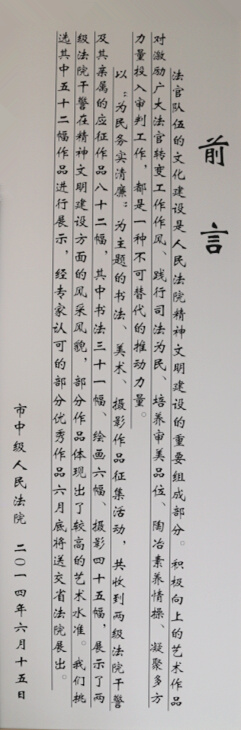 前言
法官队伍的文化建设是人民法院精神文明建设的重要组成部分。积极向上的艺术作品
对激励广大法官转变工作作风、践行司法为民、培养审美品位、陶冶素养情操、凝聚多方
力量投入审判工作，都是一种不可替代的推动力量。
以“为民务实清廉”为主题的书法、美术、摄影作品征集活动，共收到两级法院干警
及其亲属的应征作品八十二幅，其中书法三十一幅、绘画六幅、摄影四十五幅，展示了两
级法院干警在精神文明建设方面的风采风貌，部分作品体现出了较高的艺术水准。我们挑
选其中五十二幅作品进行展示，经专家认可的部分优秀作品六月底将送交省法院展出。
市中级人民法院 二〇一四年六月十五日